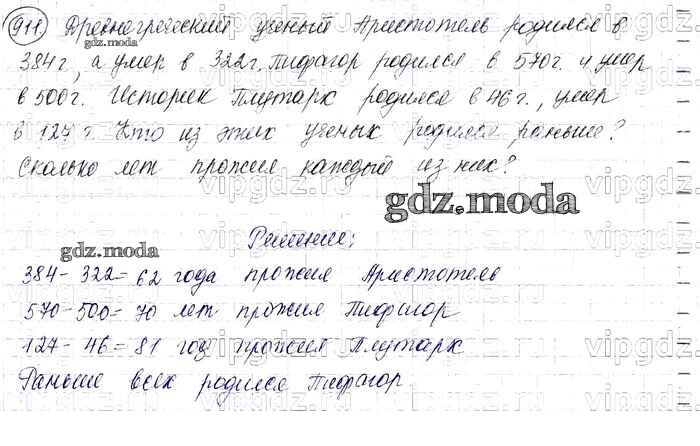 911. Древнегреческий ученый Аристотель родился в
gdz.moda
384 г, а умер в 322 г. Пифагор родился в 570 г. и умер
в 500 г. Историк Плутарк родился в 46 г., умер
в 127 г. Кто из этих ученых родился раньше?
Сколько лет прожил каждый из них?
gdz.moda
Решение:
gdz.moda
384 - 322 = 62 года прожил Аристотель
570 - 500 = 70 лет прожил Пифагор
127 - 46 = 81 год прожил Плутарк
Раньше всех родился Пифагор
vipgdz.ru